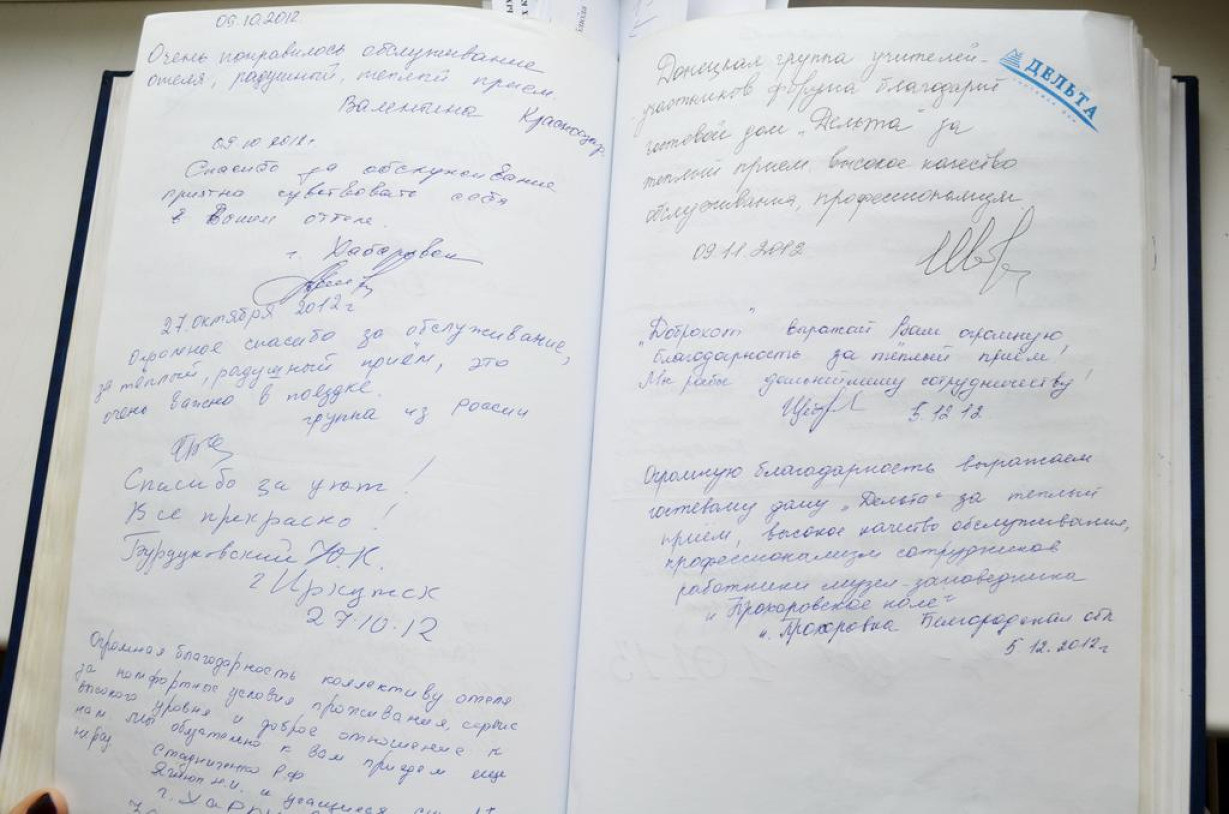 09.10.2012
Очень понравилось обслуживание
отеля, радушный, теплый прием.
Валентина Краснодар.
09.10 2012г.
Спасибо за обслуживание
приятно чувствовать себя
в Вашем отеле.
г. Хабаровск
27 октября 2012 г
Огромное спасибо за обслуживание,
за тёплый, радушный приём, это
очень важно в поездке.
группа из России
Спасибо за уют!
Все прекрасно!
Бурдуковский Ю.К.
г Иркутск
27.10.12
Огромная благодарность коллективу отеля
за комфортные условия проживания, сервис
высокого уровня и доброе отношение к
нам. Мы обязательно к вам приедем еще
не раз
Стадниченко Р.Ф
и учащиеся
г.
ДЕЛЬТА
Донецкая группа учителей-
участников форума благодарит
гостевой дом „Дельта" за
теплый прием высокое качество
обслуживания, профессионализм
09.11.2012
„Доброхот" выражает Вам огромную,
благодарность за тёплый приём!
Мы рады дальнейшему сотрудничеству!
5 12 12
Огромную благодарность выражаем
гостевому дому „Дельта" за теплый
приём, высокое качество обслуживания,
профессионализм сотрудников
работники музея-заповедника
„Прохоровское поле"
п. Прохоровка Белгородская обл
5 12.2012г